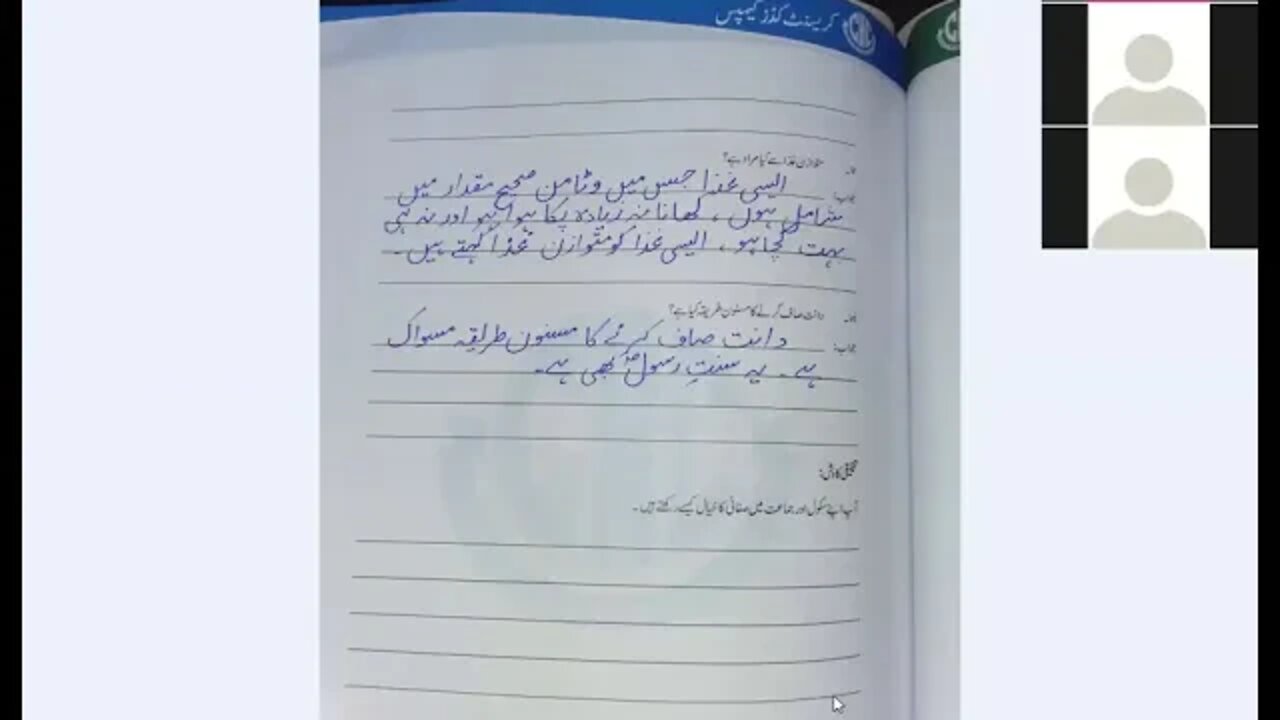 کریسنٹ کڈز کیمپس
متوازن غذا سے کیا مراد ہے؟
جواب: ایسی غذا جس میں وٹامن صحیح مقدار میں
شامل ہوں ، کھانا نہ زیادہ پکا ہوا ہو اور نہ ہی
بہت کچا ہو ، ایسی غذا کو متوازن غذا کہتے ہیں۔
دانت صاف کرنے کا مسنون طریقہ کیا ہے؟
جواب: دانت صاف کرنے کا مسنون طریقہ مسواک
ہے ۔ یہ سنتِ رسولؐ بھی ہے۔
تخلیقی کاوش:
آپ اپنے سکول اور جماعت میں صفائی کا خیال کیسے رکھتے ہیں ۔